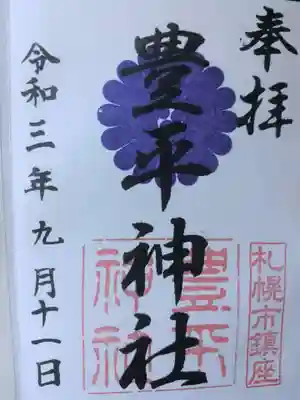 奉拝
札幌市鎮座
豊平神社
豊平神社
令和三年九月十一日